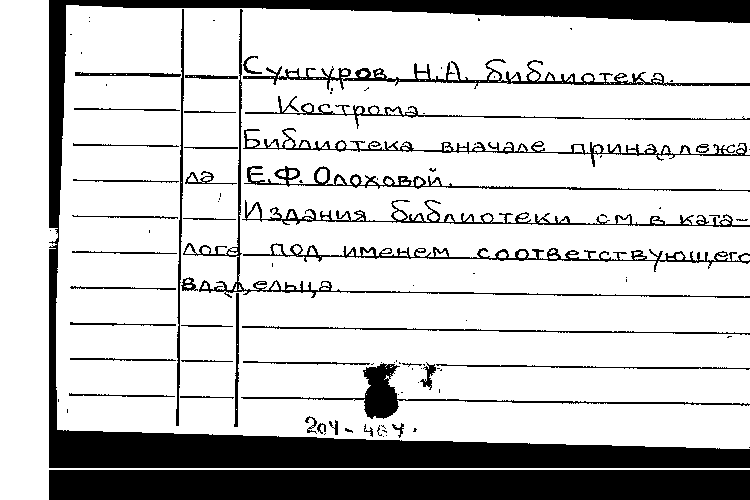 Сунгуров, Н.А., библиотека.
Кострома.
Библиотека вначале принадлежа-
ла Е.Ф. Олоховой.
Издания библиотеки см. в ката-
логе под именем соответствующего
владельца.
204-404.